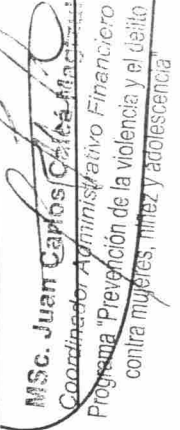 MSc. Juan Carlos
Coordinador Administrativo Financiero
Programa "Prevención de la violencia y el delito
contra mujeres, niñez y adolescencia"